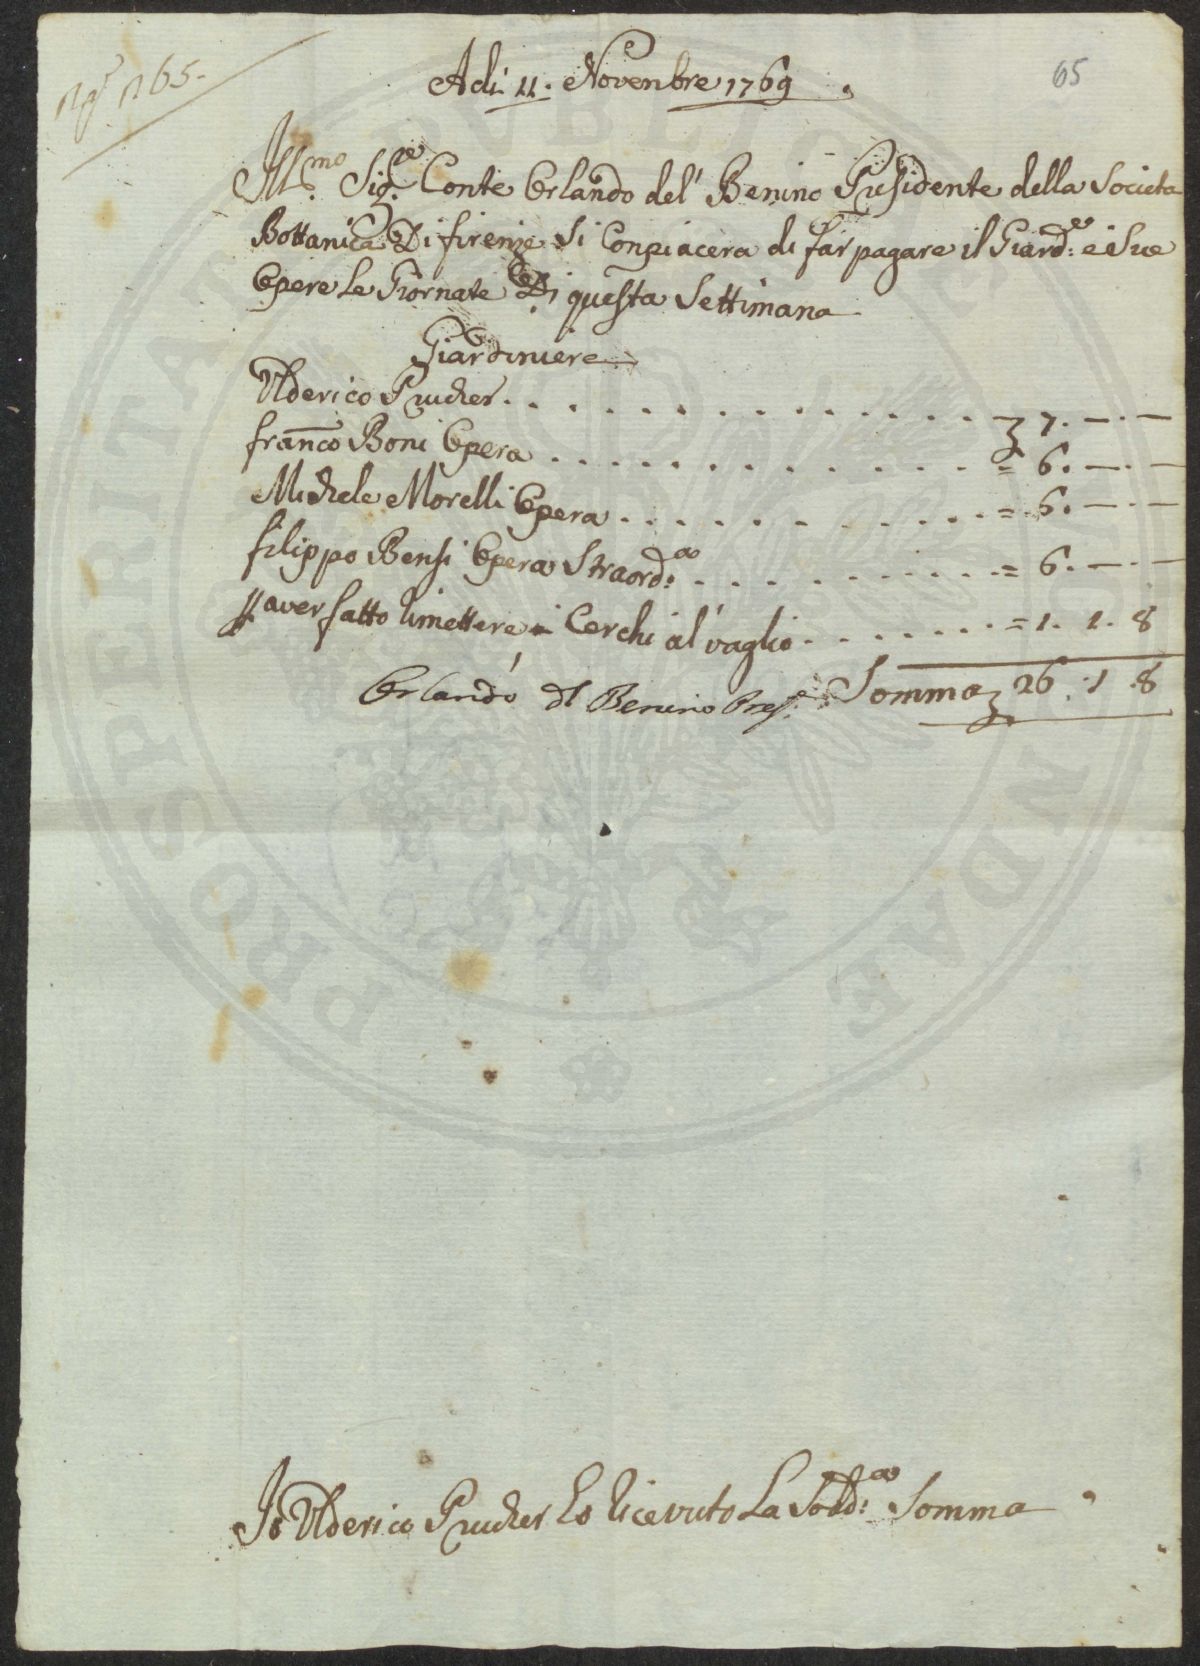 N.º 265.
65
Adi 11. Novenbre 1769.
Ill.mo Sig.re Conte Orlando del' Benino Presidente della Societa
Bottanica Di firenze Si Conpiacera di far pagare il Giard:e e Sue
Opere Le Giornate Di questa Settimana
Giardiniere
Ulderico Prucher . . . . . . . . . . . . . . 7. — . —
Franco Boni Opera . . . . . . . . . . . . = 6. — . —
Michele Morelli Opera . . . . . . . . . . = 6. — . —
filippo Bensi Opera Straord:a . . . . . . . . = 6. — . —
aver fatto rimettere i Cerchi al' vaglio . . . . . . . = 1. 1. 8
Orlando del Benino Pres. Somma 26. 1. 8
Io Ulderico Prucher ho ricevuto La Sodd:a Somma
PUBLICAE
PROSPERITATI